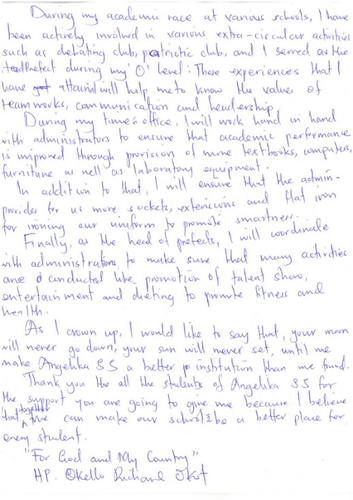 During my academic race at various schools, I have
been actively involved in various extra-circular activities
such as debating club, patriotic club, and I served as the
during my 'O' level. These experiences that I
have attained will help me to know the values of
teamworks, communication and leadership.
During my time's office, I will work hand in hand
with administrators to ensure that academic performance
is improved through provision of more textbooks, computers,
furniture as well as laboratory equipment.
In addition to that, I will ensure that the admin-
provides for us more sockets, extensions and flat iron
for ironing our uniform to promote smartness.
Finally, as the head of prefects, I will coordinate
with administrators to make sure that many activities
are conducted like promotion of talent show,
entertainment and dieting to promote fitness and
health.
As I crown up, I would like to say that, your moon
will never go down, your sun will never set, until we
make Angelika SS a better institution than we found.
Thank you the all the students of Angelika SS for
the support you are going to give me because I believe
that together we can make our school be a better place for
every student.
"For God and My Country"
HP. Okello Richard